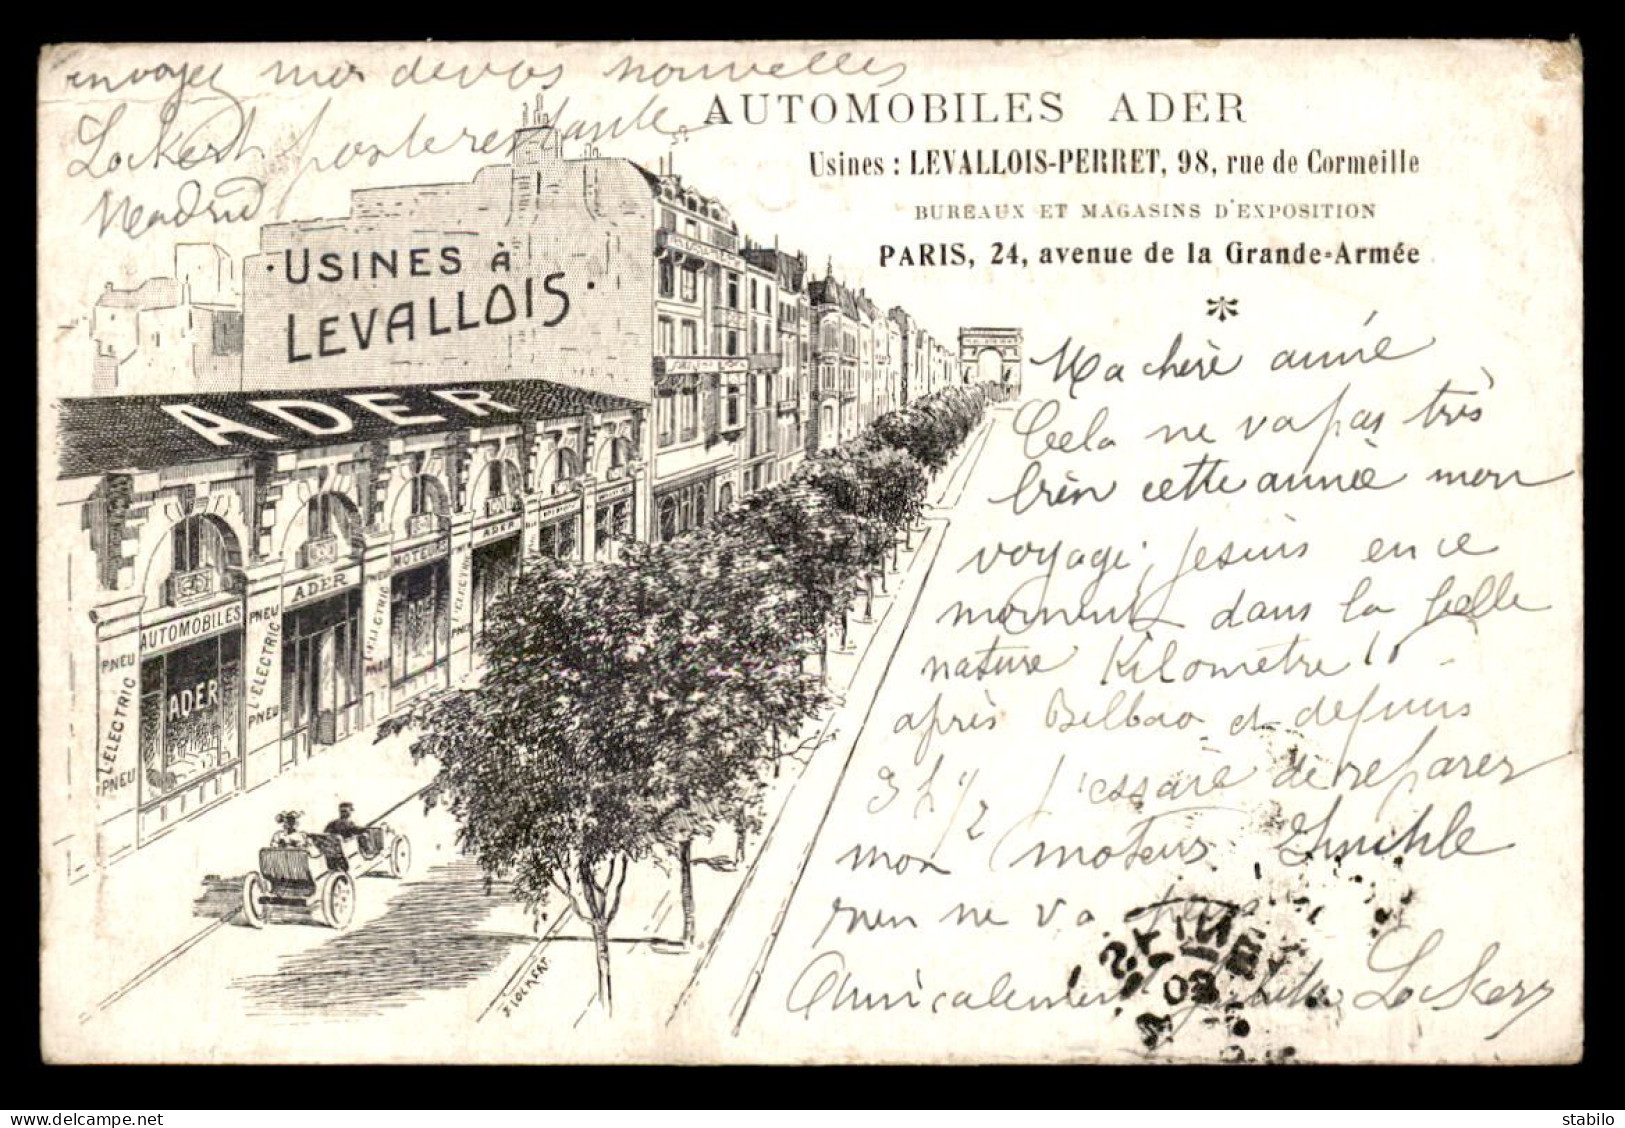 envoyez moi de vos nouvelles
Lockert poste restante
Madrid
AUTOMOBILES ADER
Usines : LEVALLOIS-PERRET, 98, rue de Cormeille
BUREAUX ET MAGASINS D'EXPOSITION
PARIS, 24, avenue de la Grande-Armée
USINES à
LEVALLOIS
ADER
AUTOMOBILES
ADER
MOTEURS
ADER
PNEU
L'ELECTRIC
PNEU
ADER
PNEU
L'ELECTRIC
PNEU
PNEU
L'ELECTRIC
PNEU
L'ELECTRIC
Ma chère amie
Cela ne va pas très
bien cette année mon
voyage, je suis en ce
moment dans la belle
nature Kilomètre 10
après Bilbao et depuis
3 h 1/2 j'essaie de reparer
mon moteur Inutile
rien ne va plus
Amicalement Lockert
J. LOCKERT
03
stabilo